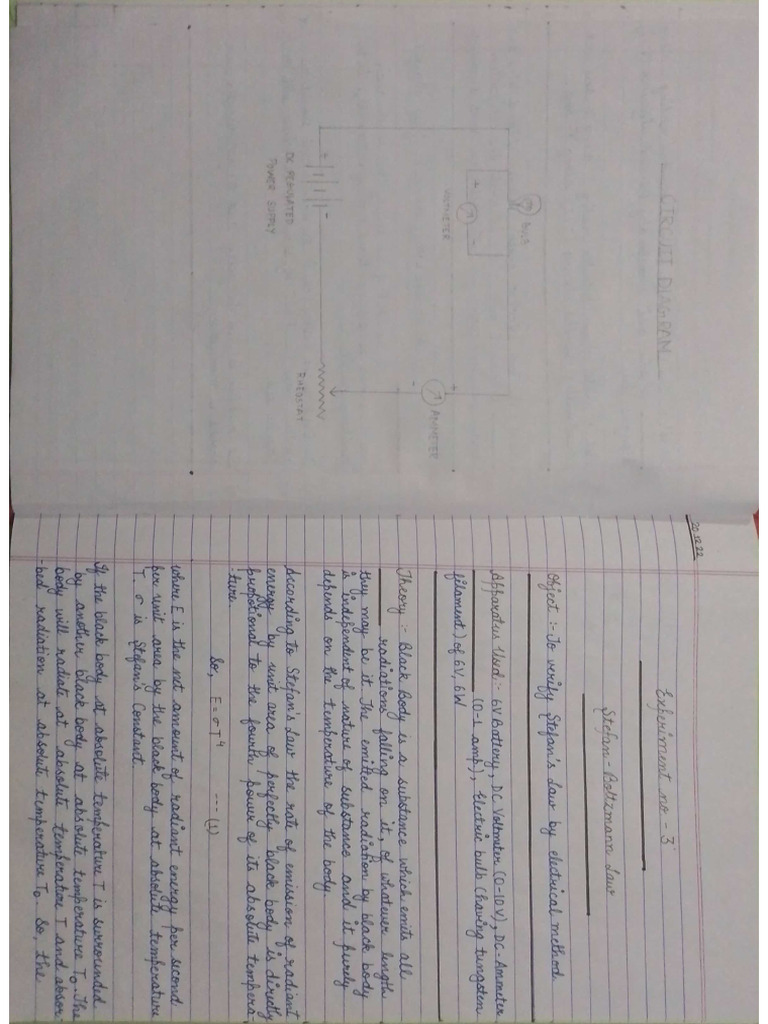 CIRCUIT DIAGRAM
BULB
VOLTMETER
+
-
+
AMMETER
-
+
-
DC REGULATED
POWER SUPPLY
RHEOSTAT
20.12.22
Experiment no - 3
Stefan - Boltzmann Law
Object :- To verify Stefan's Law by electrical method
Apparatus Used :- 6V Battery, DC Voltmeter (0-10V), DC-Ammeter
(0-1 amp), Electric bulb (having tungsten
filament) of 6V, 6W
Theory :- Black Body is a substance which emits all
radiations falling on it, of whatever length
they may be it. The emitted radiation by black body
is independent of nature of substance and it purely
depends on the temperature of the body.
According to Stefan's Law the rate of emission of radiant
energy by unit area of perfectly black body is directly
propotional to the fourth power of its absolute tempera-
-ture.
So, E = σT⁴ ---- (1)
where E is the net amount of radiant energy per second
per unit area by the black body at absolute temperature
T. σ is Stefan's Constant.
If the black body at absolute temperature T is surrounded
by another black body at absolute temperature T₀. The
body will radiate at absolute temperature T and absor-
-bed radiation at absolute temperature T₀. So, the